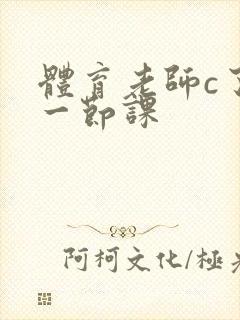 體育老師c了
一節課
阿柯文化/極光